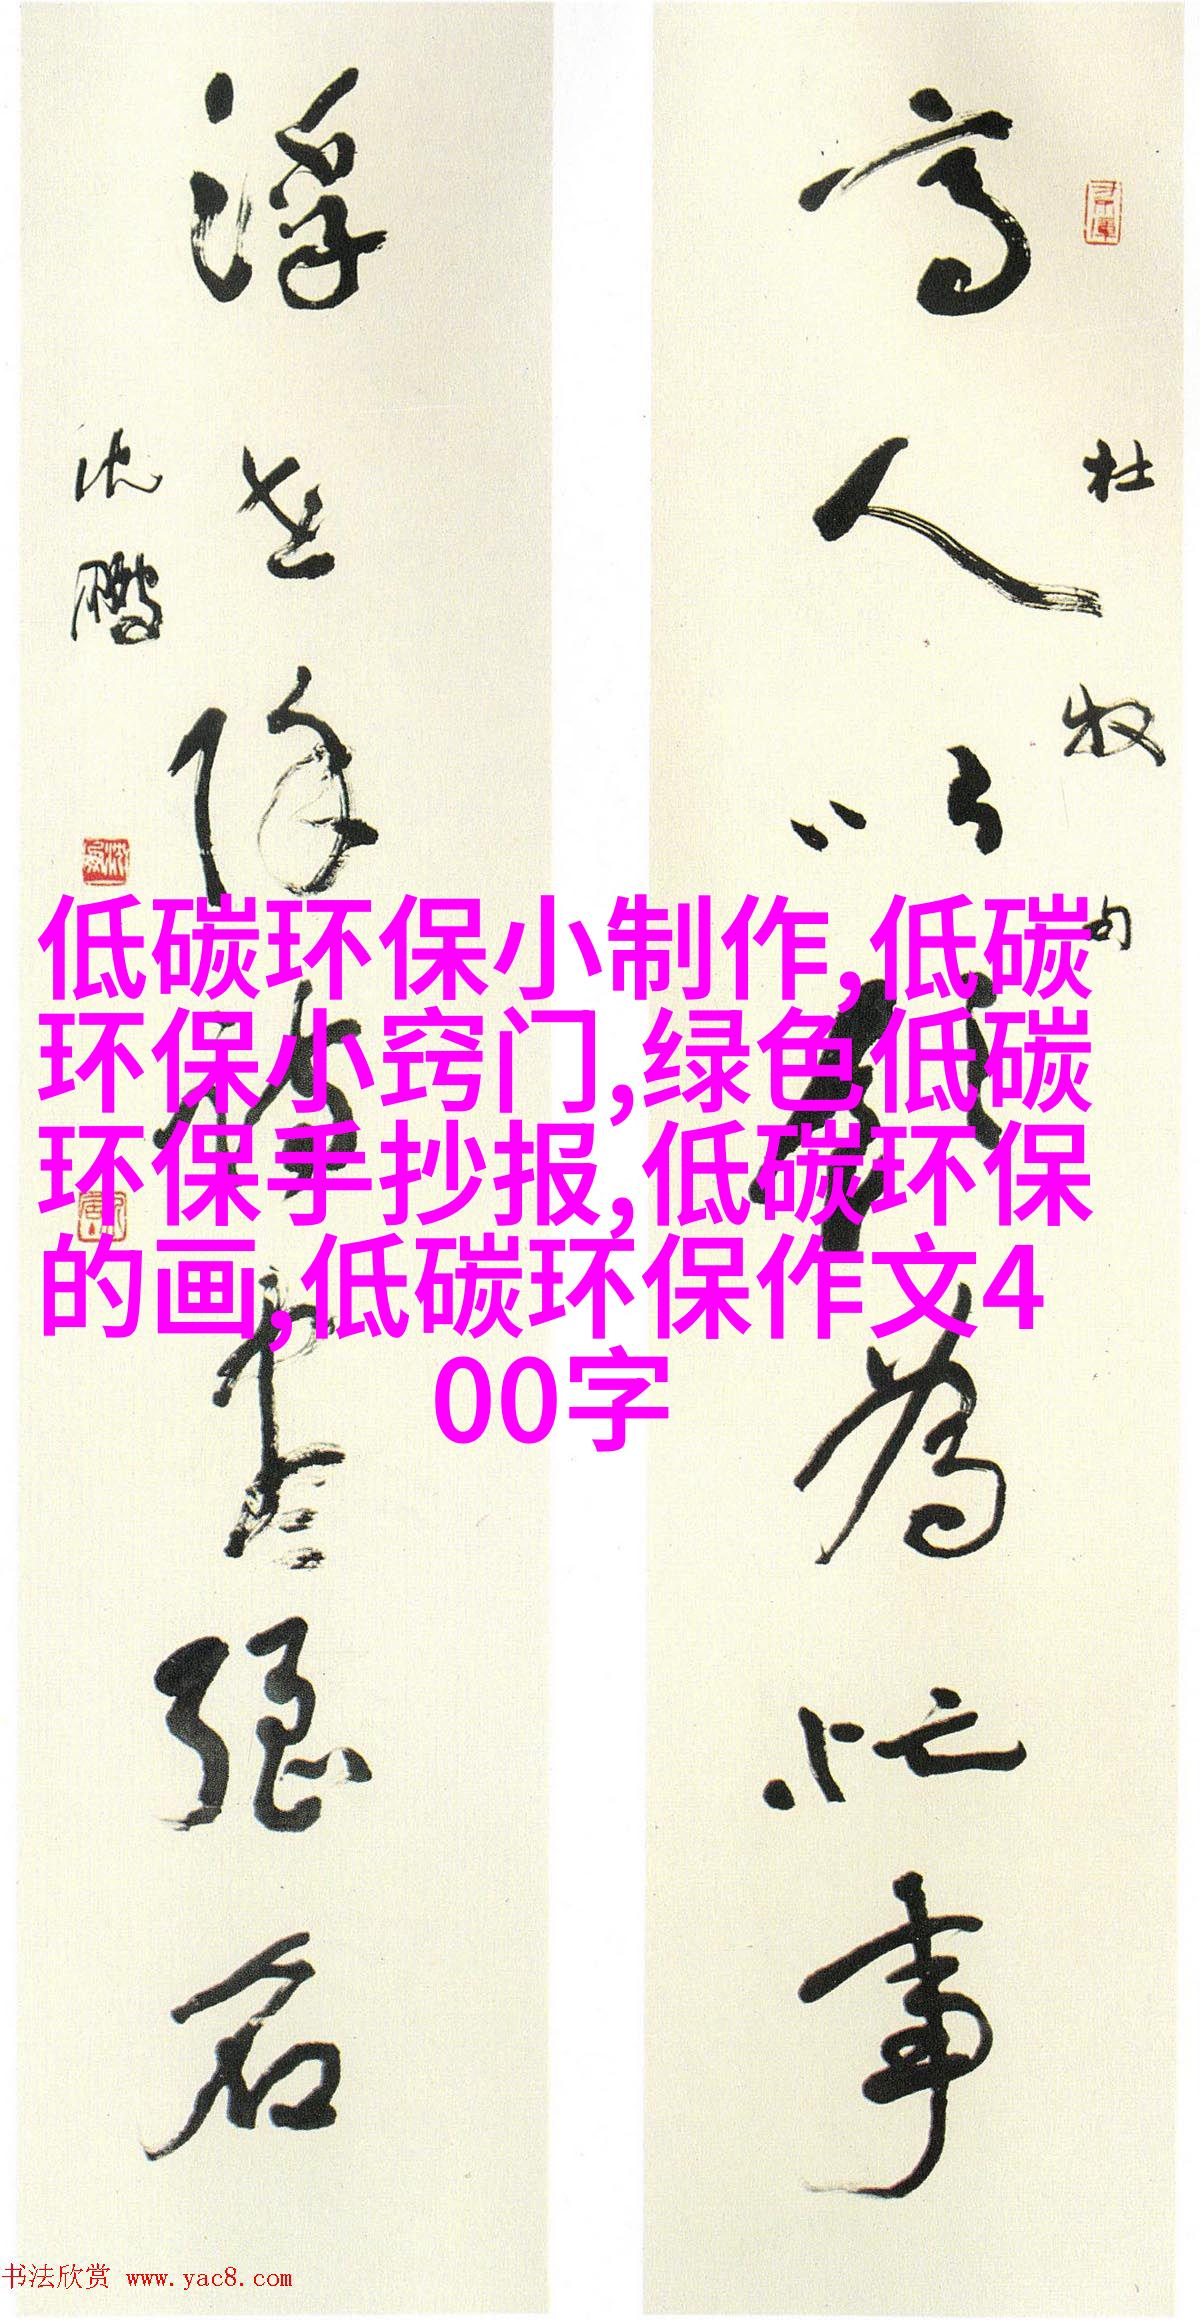 杜牧句
高人以飲為忙事
浮世除詩盡强名
沈鹏
低碳环保小制作,低碳
环保小窍门,绿色低碳
环保手抄报,低碳环保
的画,低碳环保作文4
00字
书法欣赏 www.yac8.com